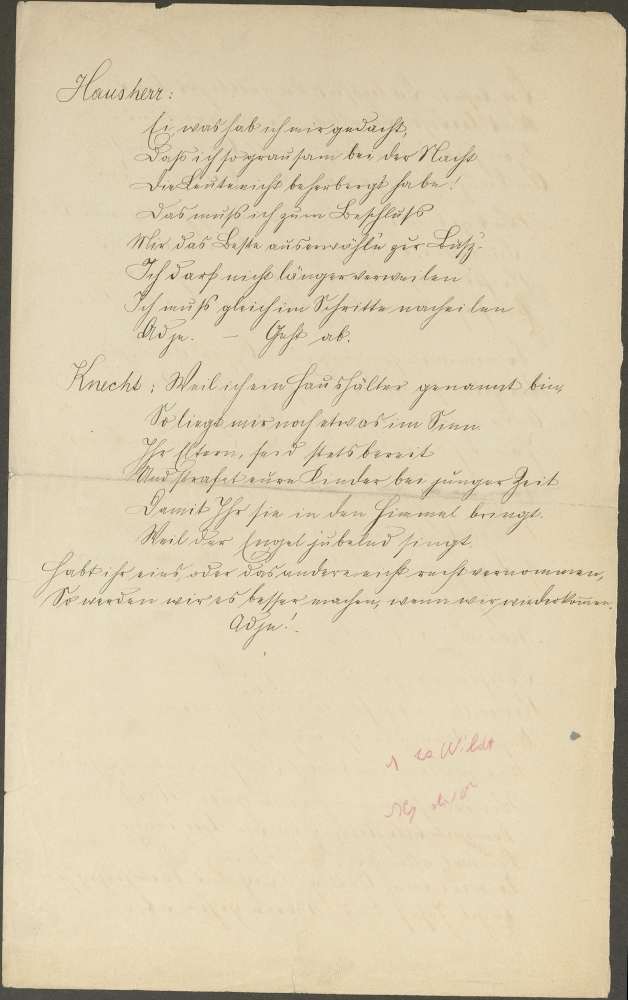 Hausherr:
Ei, was hab ich mir gedacht,
Daß ich so grausam bei der Nacht
Die Leute nicht beherbergt habe!
Das muß ich zum Beschluß
Mir das Beste auserwähle zur Buß.
Ich darf nicht länger verweilen
Ich muß gleich im Schritte nacheilen
Adje. — Geht ab.
Knecht: Weil ich ein Haushälter genannt bin,
So liegt mir noch etwas im Sinn.
Ihr Eltern, seid stets bereit
Und strafet eure Kinder bei junger Zeit
Damit Ihr sie in den Himmel bringt.
Weil der Engel jubelnd singt.
Habt ihr eins oder das andere nicht recht vernommen,
So werden wir es besser machen, wenn wir wiederkomen.
Adje!